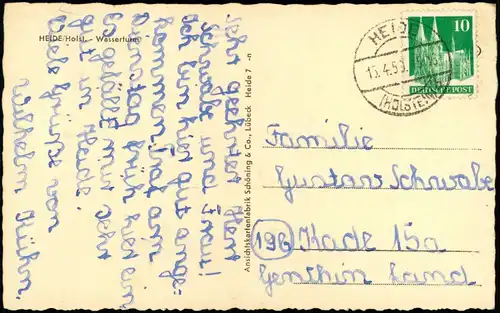 HEIDE/Holst. - Wasserturm
Sehr geehrter Herr
Schwabe und Frau!
Ich bin hier gut ange-
kommen. Traf am
Dienstag früh hier ein
Es gefällt mir sehr
gut in Heide.
Viele Grüße von
Wilhelm Kühn.
Ansichtskartenfabrik Schöning & Co., Lübeck Heide 7 -n
HEIDE
(HOLSTEIN)
10
DEUTSCHE POST
Familie
Gustav Schwabe
19b Kade 15a
Genthin Land